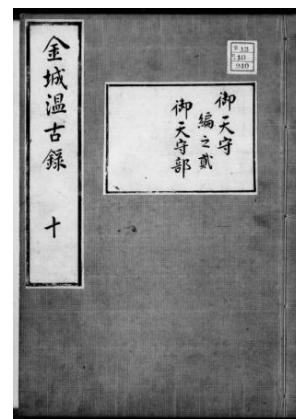 金城温古録　十
御天守
編之貳
御天守部